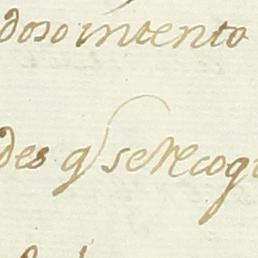 doso intento
des q̃ se Recog